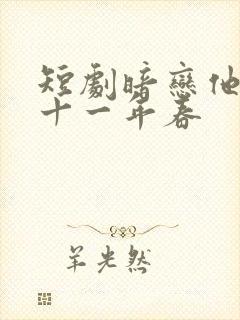 短劇暗戀他
十一年春
羊光然